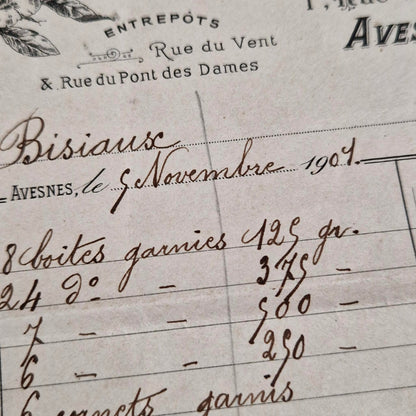 ENTREPÔTS
Rue du Vent
& Rue du Pont des Dames
AVES
Bisiaux
AVESNES, le 5 Novembre 1907.
8 boites garnies 125 gr.
24 do - 375 -
7 - - 500 -
6 - - 250 -
6 cornets garnis